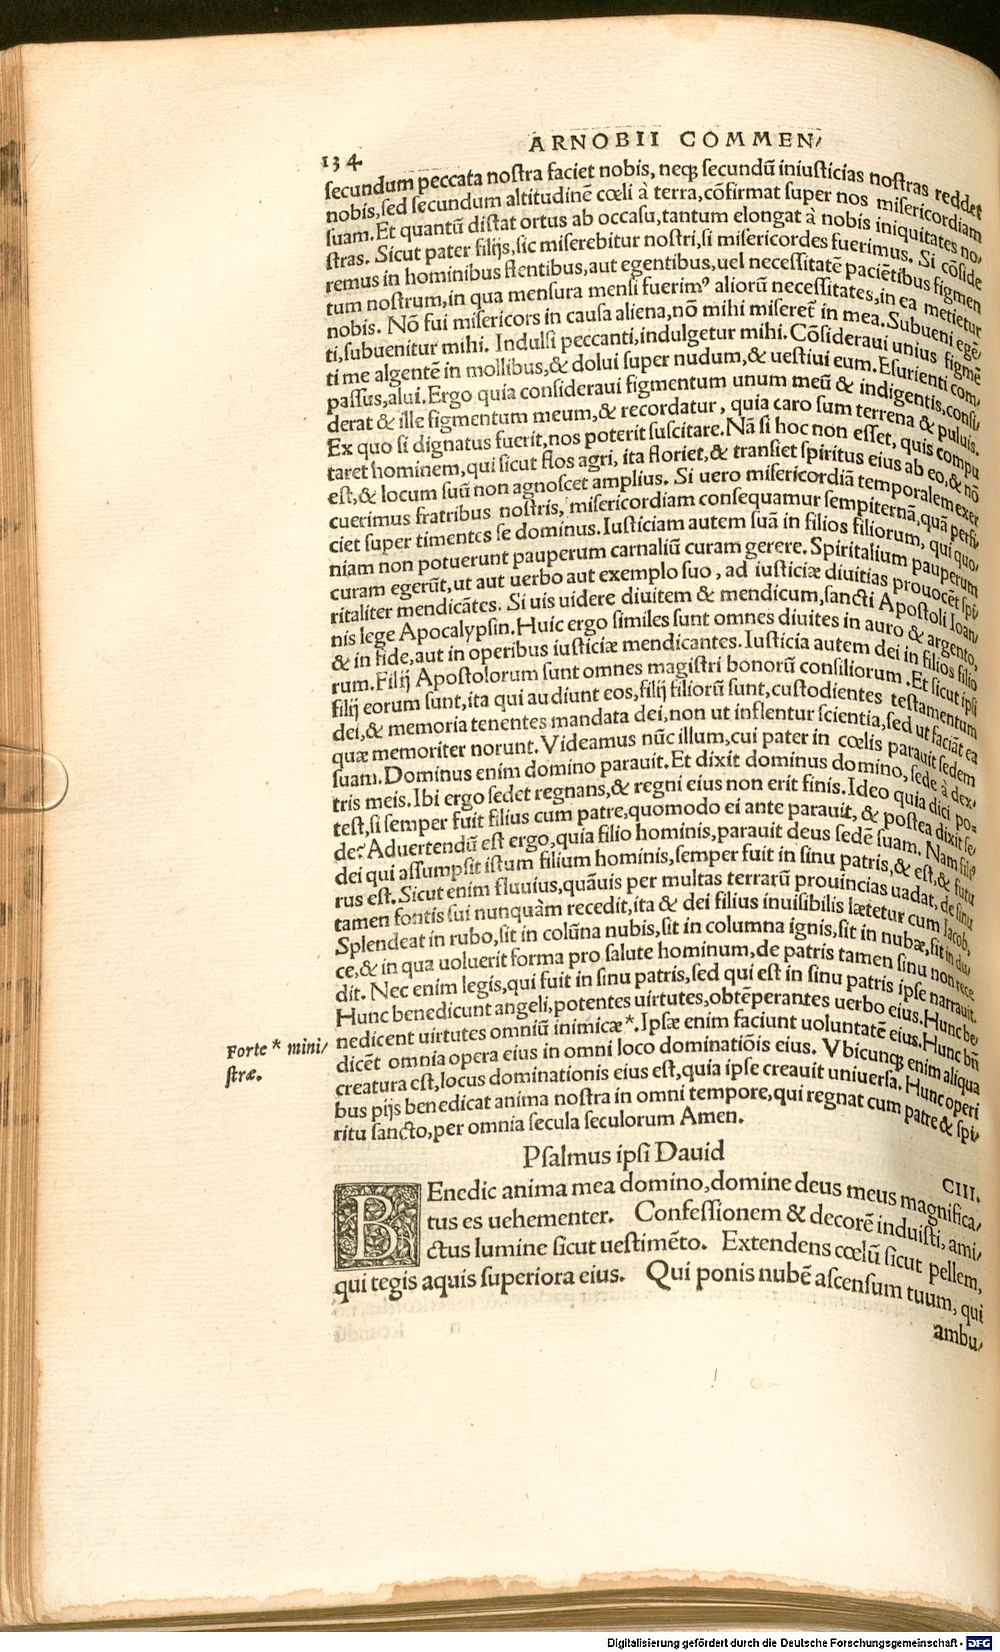 134 ARNOBII COMMEN/
secundum peccata nostra faciet nobis, neq; secundū iniusticias nostras reddet
nobis, sed secundum altitudinē cœli à terra, cōfirmat super nos misericordiam
suam. Et quantū distat ortus ab occasu, tantum elongat à nobis iniquitates no/
stras. Sicut pater filijs, sic miserebitur nostri, si misericordes fuerimus. Si cōside
remus in hominibus flentibus, aut egentibus, uel necessitatē paciētibus figmen
tum nostrum, in qua mensura mensi fuerim⁹ aliorū necessitates, in ea metietur
nobis. Nō fui misericors in causa aliena, nō mihi miseret̄ in mea. Subueni egē/
ti, subuenitur mihi. Indulsi peccanti, indulgetur mihi. Cōsideraui unius figmē
ti me algentē in mollibus, & dolui super nudum, & uestiui eum. Esurienti com/
passus, alui. Ergo quia consideraui figmentum unum meū & indigentis, consi/
derat & ille figmentum meum, & recordatur, quia caro sum terrena & puluis.
Ex quo si dignatus fuerit, nos poterit suscitare. Nā si hoc non esset, quis compu
taret hominem, qui sicut flos agri, ita floriet, & transiet spiritus eius ab eo, & nō
est, & locum suū non agnoscet amplius. Si uero misericordiā temporalem exer
cuerimus fratribus nostris, misericordiam consequamur sempiternā, quā perfi/
ciet super timentes se dominus. Iusticiam autem suā in filios filiorum, qui quo/
niam non potuerunt pauperum carnaliū curam gerere. Spiritalium pauperum
curam egerūt, ut aut uerbo aut exemplo suo, ad iusticiæ diuitias prouocet spi/
ritaliter mendicātes. Si uis uidere diuitem & mendicum, sancti Apostoli Ioan/
nis lege Apocalypsin. Huic ergo similes sunt omnes diuites in auro & argento,
& in fide, aut in operibus iusticiæ mendicantes. Iusticia autem dei in filios filio
rum. Filij Apostolorum sunt omnes magistri bonorū consiliorum. Et sicut ipsi
filij eorum sunt, ita qui audiunt eos, filij filiorū sunt, custodientes testamentum
dei, & memoria tenentes mandata dei, non ut inflentur scientia, sed ut faciāt ea
quæ memoriter norunt. Videamus nūc illum, cui pater in cœlis parauit sedem
suam. Dominus enim domino parauit. Et dixit dominus domino, sede à dex/
tris meis. Ibi ergo sedet regnans, & regni eius non erit finis. Ideo quia dici po=
test, si semper fuit filius cum patre, quomodo ei ante parauit, & postea dixit se/
de? Aduertendū est ergo, quia filio hominis, parauit deus sedē suam. Nam fili⁹
dei qui assumpsit istum filium hominis, semper fuit in sinu patris, & est, & futu
rus est. Sicut enim fluuius, quāuis per multas terrarū prouincias uadat, de sinu
tamen fontis sui nunquàm recedit, ita & dei filius inuisibilis lætetur cum Iacob,
Splendeat in rubo, sit in colūna nubis, sit in columna ignis, sit in nubæ, sit in du/
ce, & in qua uoluerit forma pro salute hominum, de patris tamen sinu non rece
dit. Nec enim legis, qui fuit in sinu patris, sed qui est in sinu patris ipse narrauit.
Hunc benedicunt angeli, potentes uirtutes, obtēperantes uerbo eius. Hunc be/
nedicent uirtutes omniū inimicæ*. Ipsæ enim faciunt uoluntatē eius. Hunc bn̄
Forte * mini/
stræ.
dicēt omnia opera eius in omni loco dominatiōis eius. Vbicunq; enim aliqua
creatura est, locus dominationis eius est, quia ipse creauit uniuersa. Hunc operi
bus pijs benedicat anima nostra in omni tempore, qui regnat cum patre & spi/
ritu sancto, per omnia secula seculorum Amen.
Psalmus ipsi Dauid CIII.
BEnedic anima mea domino, domine deus meus magnifica/
tus es uehementer. Confessionem & decorē induisti, ami/
ctus lumine sicut uestimēto. Extendens cœlū sicut pellem,
qui tegis aquis superiora eius. Qui ponis nubē ascensum tuum, qui
ambu/
Digitalisierung gefördert durch die Deutsche Forschungsgemeinschaft - DFG